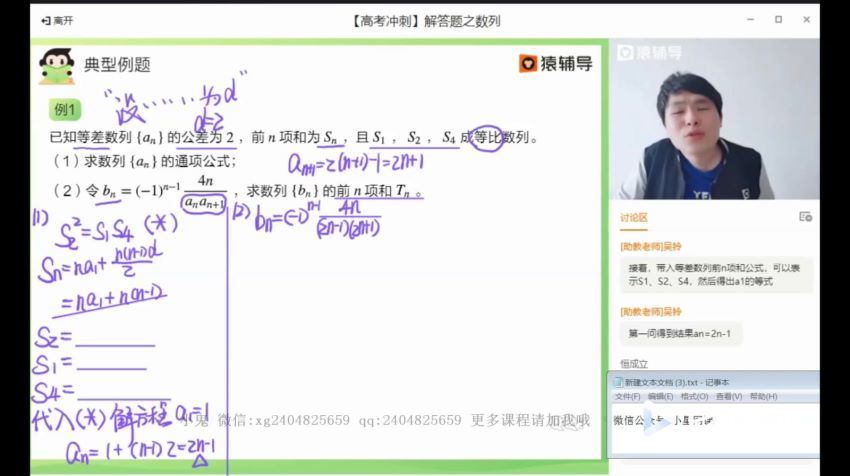 离开
【高考冲刺】解答题之数列
典型例题
猿辅导
猿辅导
例1
“设……为d”
d=2
已知等差数列 {aₙ} 的公差为 2，前 n 项和为 Sₙ，且 S₁，S₂，S₄ 成等比数列。
（1）求数列 {aₙ} 的通项公式；
aₙ₊₁=2(n+1)-1=2n+1
（2）令 bₙ=(−1)ⁿ⁻¹ 4n/(aₙaₙ₊₁)，求数列 {bₙ} 的前 n 项和 Tₙ。
(1)
S₂²=S₁S₄ (*)
Sₙ=na₁+n(n-1)d/2
=na₁+n(n-1)
S₂=
S₁=
S₄=
代入(*) 解方程 a₁=1
aₙ=1+(n-1)2=2n-1
(2) bₙ=(-1)ⁿ⁻¹ 4n/((2n-1)(2n+1))
小鬼 微信:xg2404825659 qq:2404825659 更多课程请加我哦
讨论区
[助教老师]吴拎
接着，带入等差数列前n项和公式，可以表
示S1、S2、S4，然后得出a1的等式
[助教老师]吴拎
第一问得到结果an=2n-1
恒成立
新建文本文档 (3).txt - 记事本
文件(F) 编辑(E) 格式(O) 查看(V) 帮助(H)
微信公众号